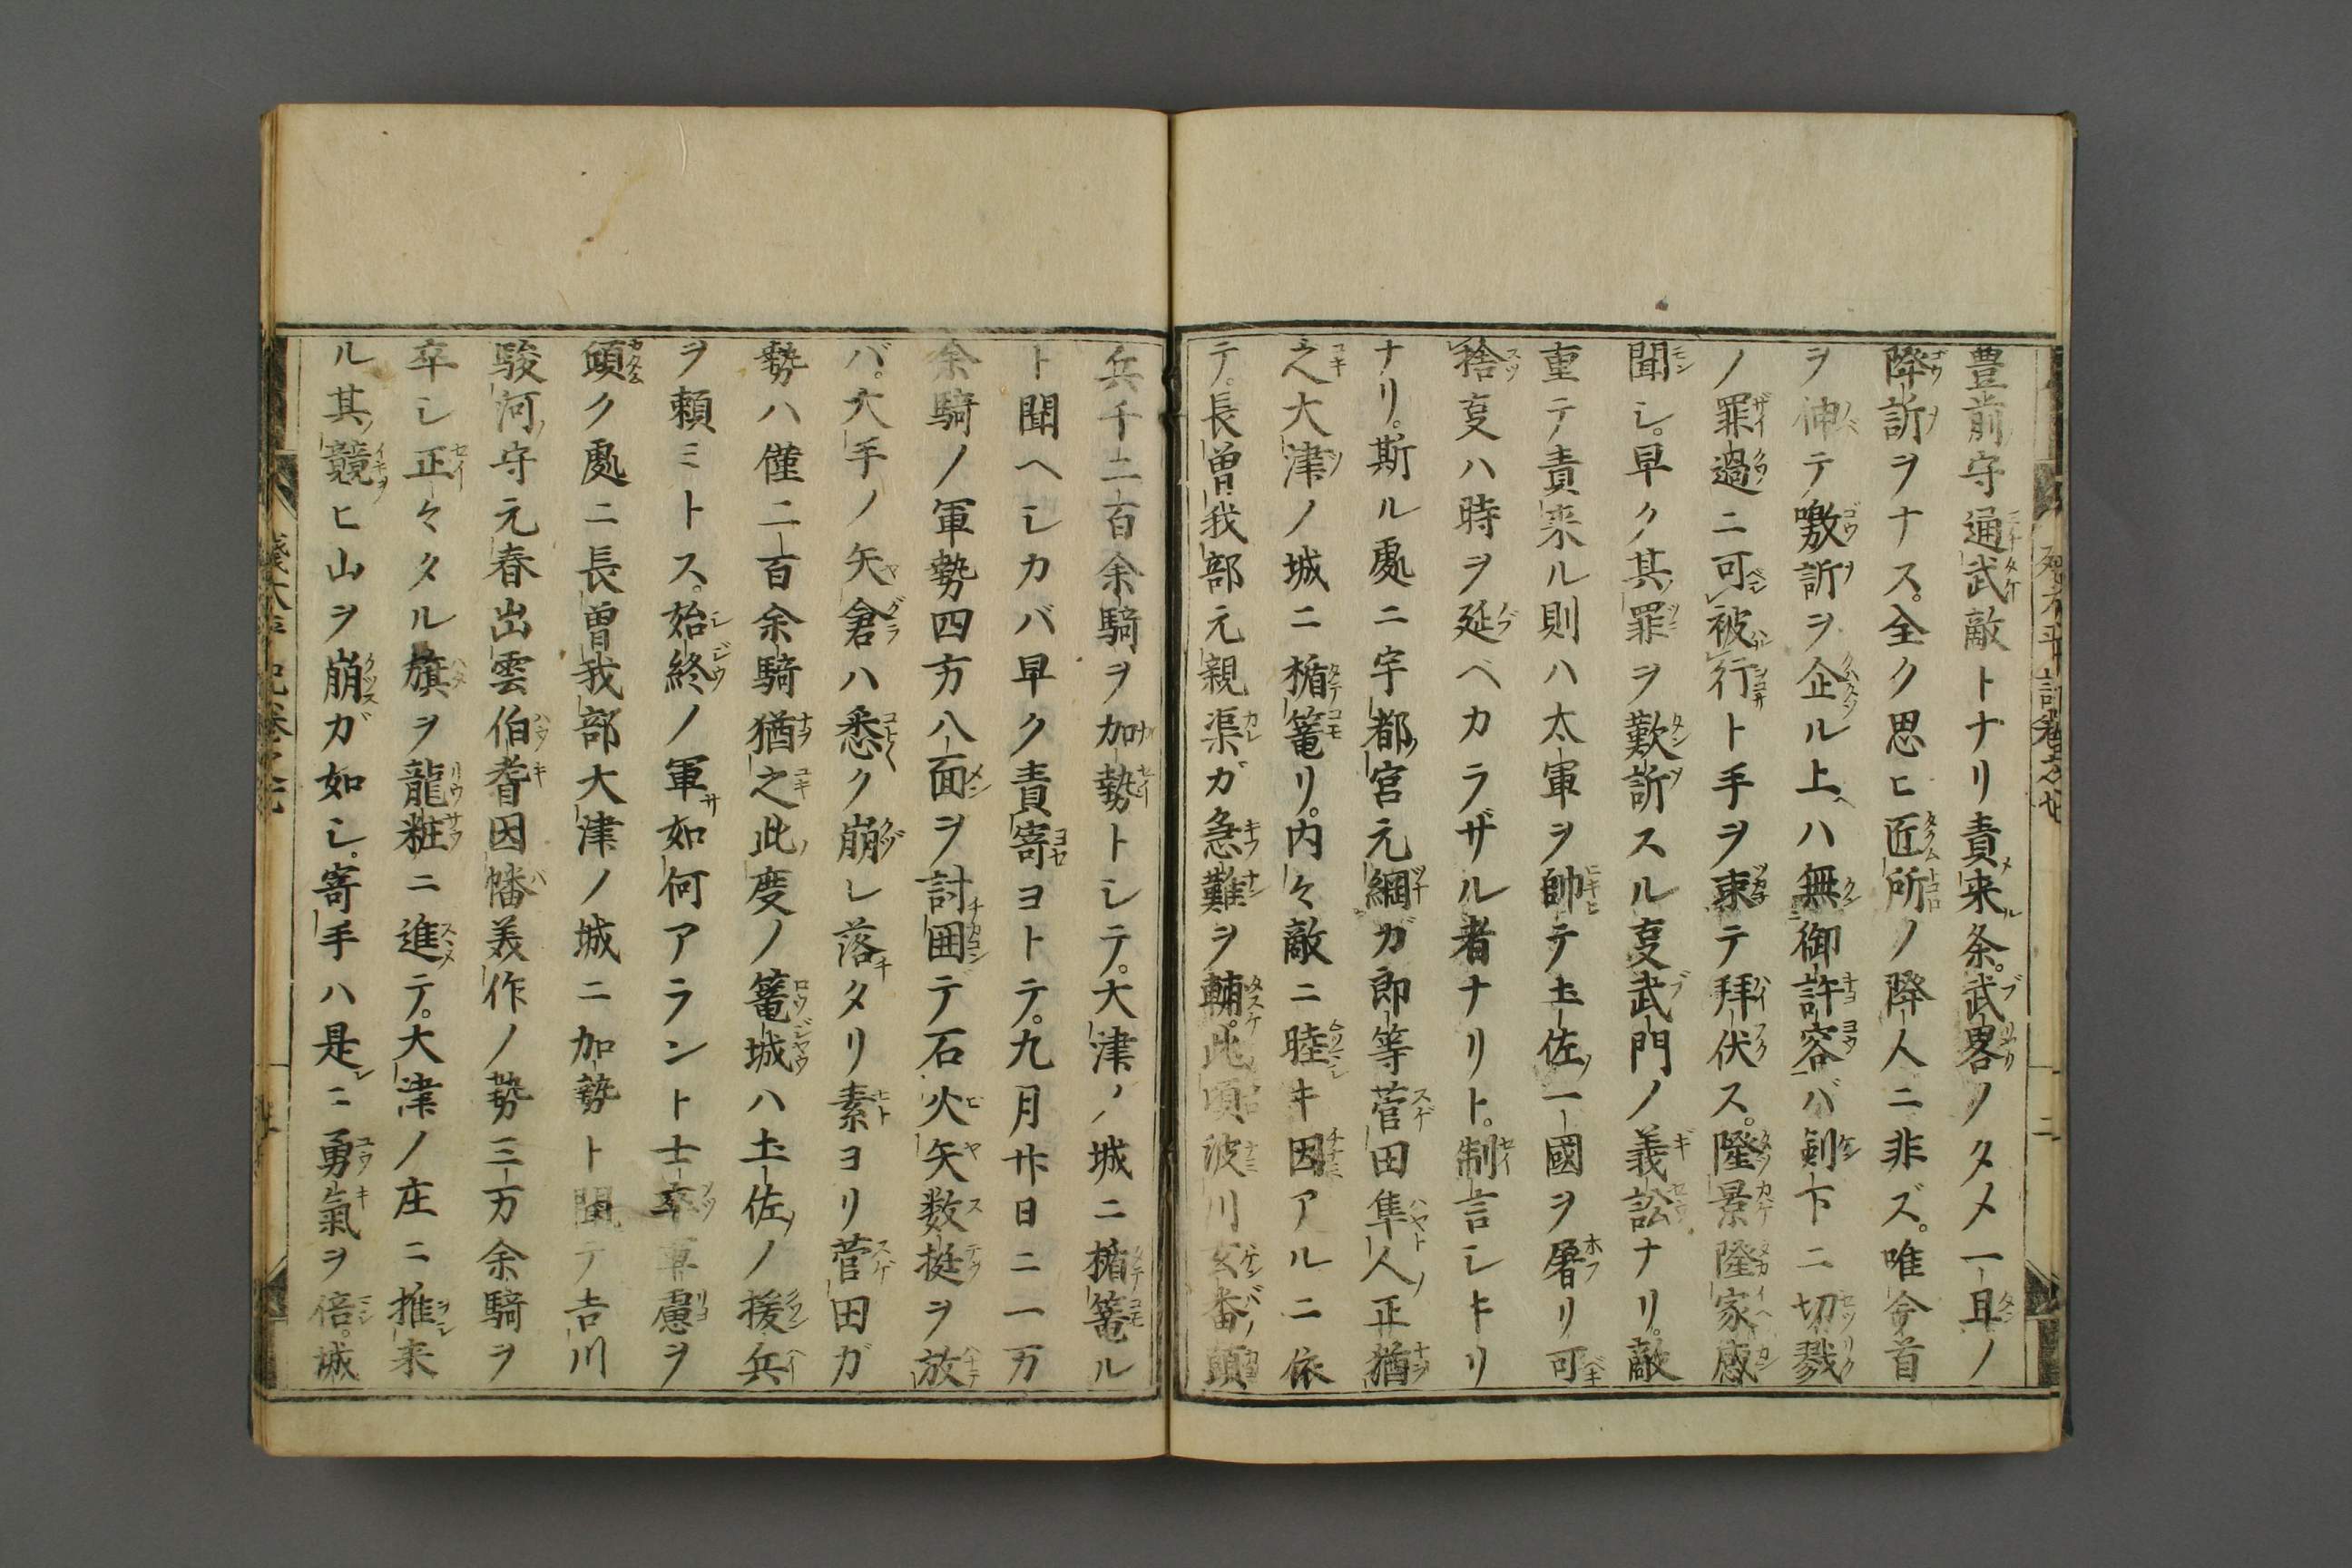 豊前守通武敵トナリ責来条。武畧ノタメ一旦ノ
降訴ヲナス。全ク思ヒ匠所ノ降人ニ非ズ。唯今首
ヲ伸テ嗷訴ヲ企ル上ハ無御許容バ剣下ニ切戮
ノ罪過ニ可被行ト手ヲ束テ拜伏ス。隆景隆家感
聞シ。早ク其罪ヲ歎訴スル叓武門ノ義訟ナリ。敵
重テ責来ル則ハ太軍ヲ帥テ土佐一國ヲ屠リ可
捨叓ハ時ヲ延ベカラザル者ナリト。制言シキリ
ナリ。斯ル處ニ宇都宮元綱ガ郎等菅田隼人正猶
之大津ノ城ニ楯篭リ。内々敵ニ睦キ因アルニ依
テ。長曽我部元親渠ガ急難ヲ輔。此頃波川玄番頭
兵千二百余騎ヲ加勢トシテ。大津ノ城ニ楯篭ル
ト聞ヘシカバ早ク責寄ヨトテ。九月廿日ニ一万
余騎ノ軍勢四方八面ヲ討囲テ石火矢数挺ヲ放
バ。大手ノ矢倉ハ悉ク崩レ落タリ素ヨリ菅田ガ
勢ハ僅二百余騎猶之此度ノ篭城ハ土佐ノ援兵
ヲ頼ミトス。始終ノ軍如何アラント士卒軍慮ヲ
傾ク處ニ長曽我部大津ノ城ニ加勢ト聞テ吉川
駿河守元春出雲伯耆因幡美作ノ勢三万余騎ヲ
卒シ正々タル旗ヲ龍粧ニ進テ。大津ノ庄ニ推来
ル其競ヒ山ヲ崩ガ如シ。寄手ハ是ニ勇氣ヲ倍。城